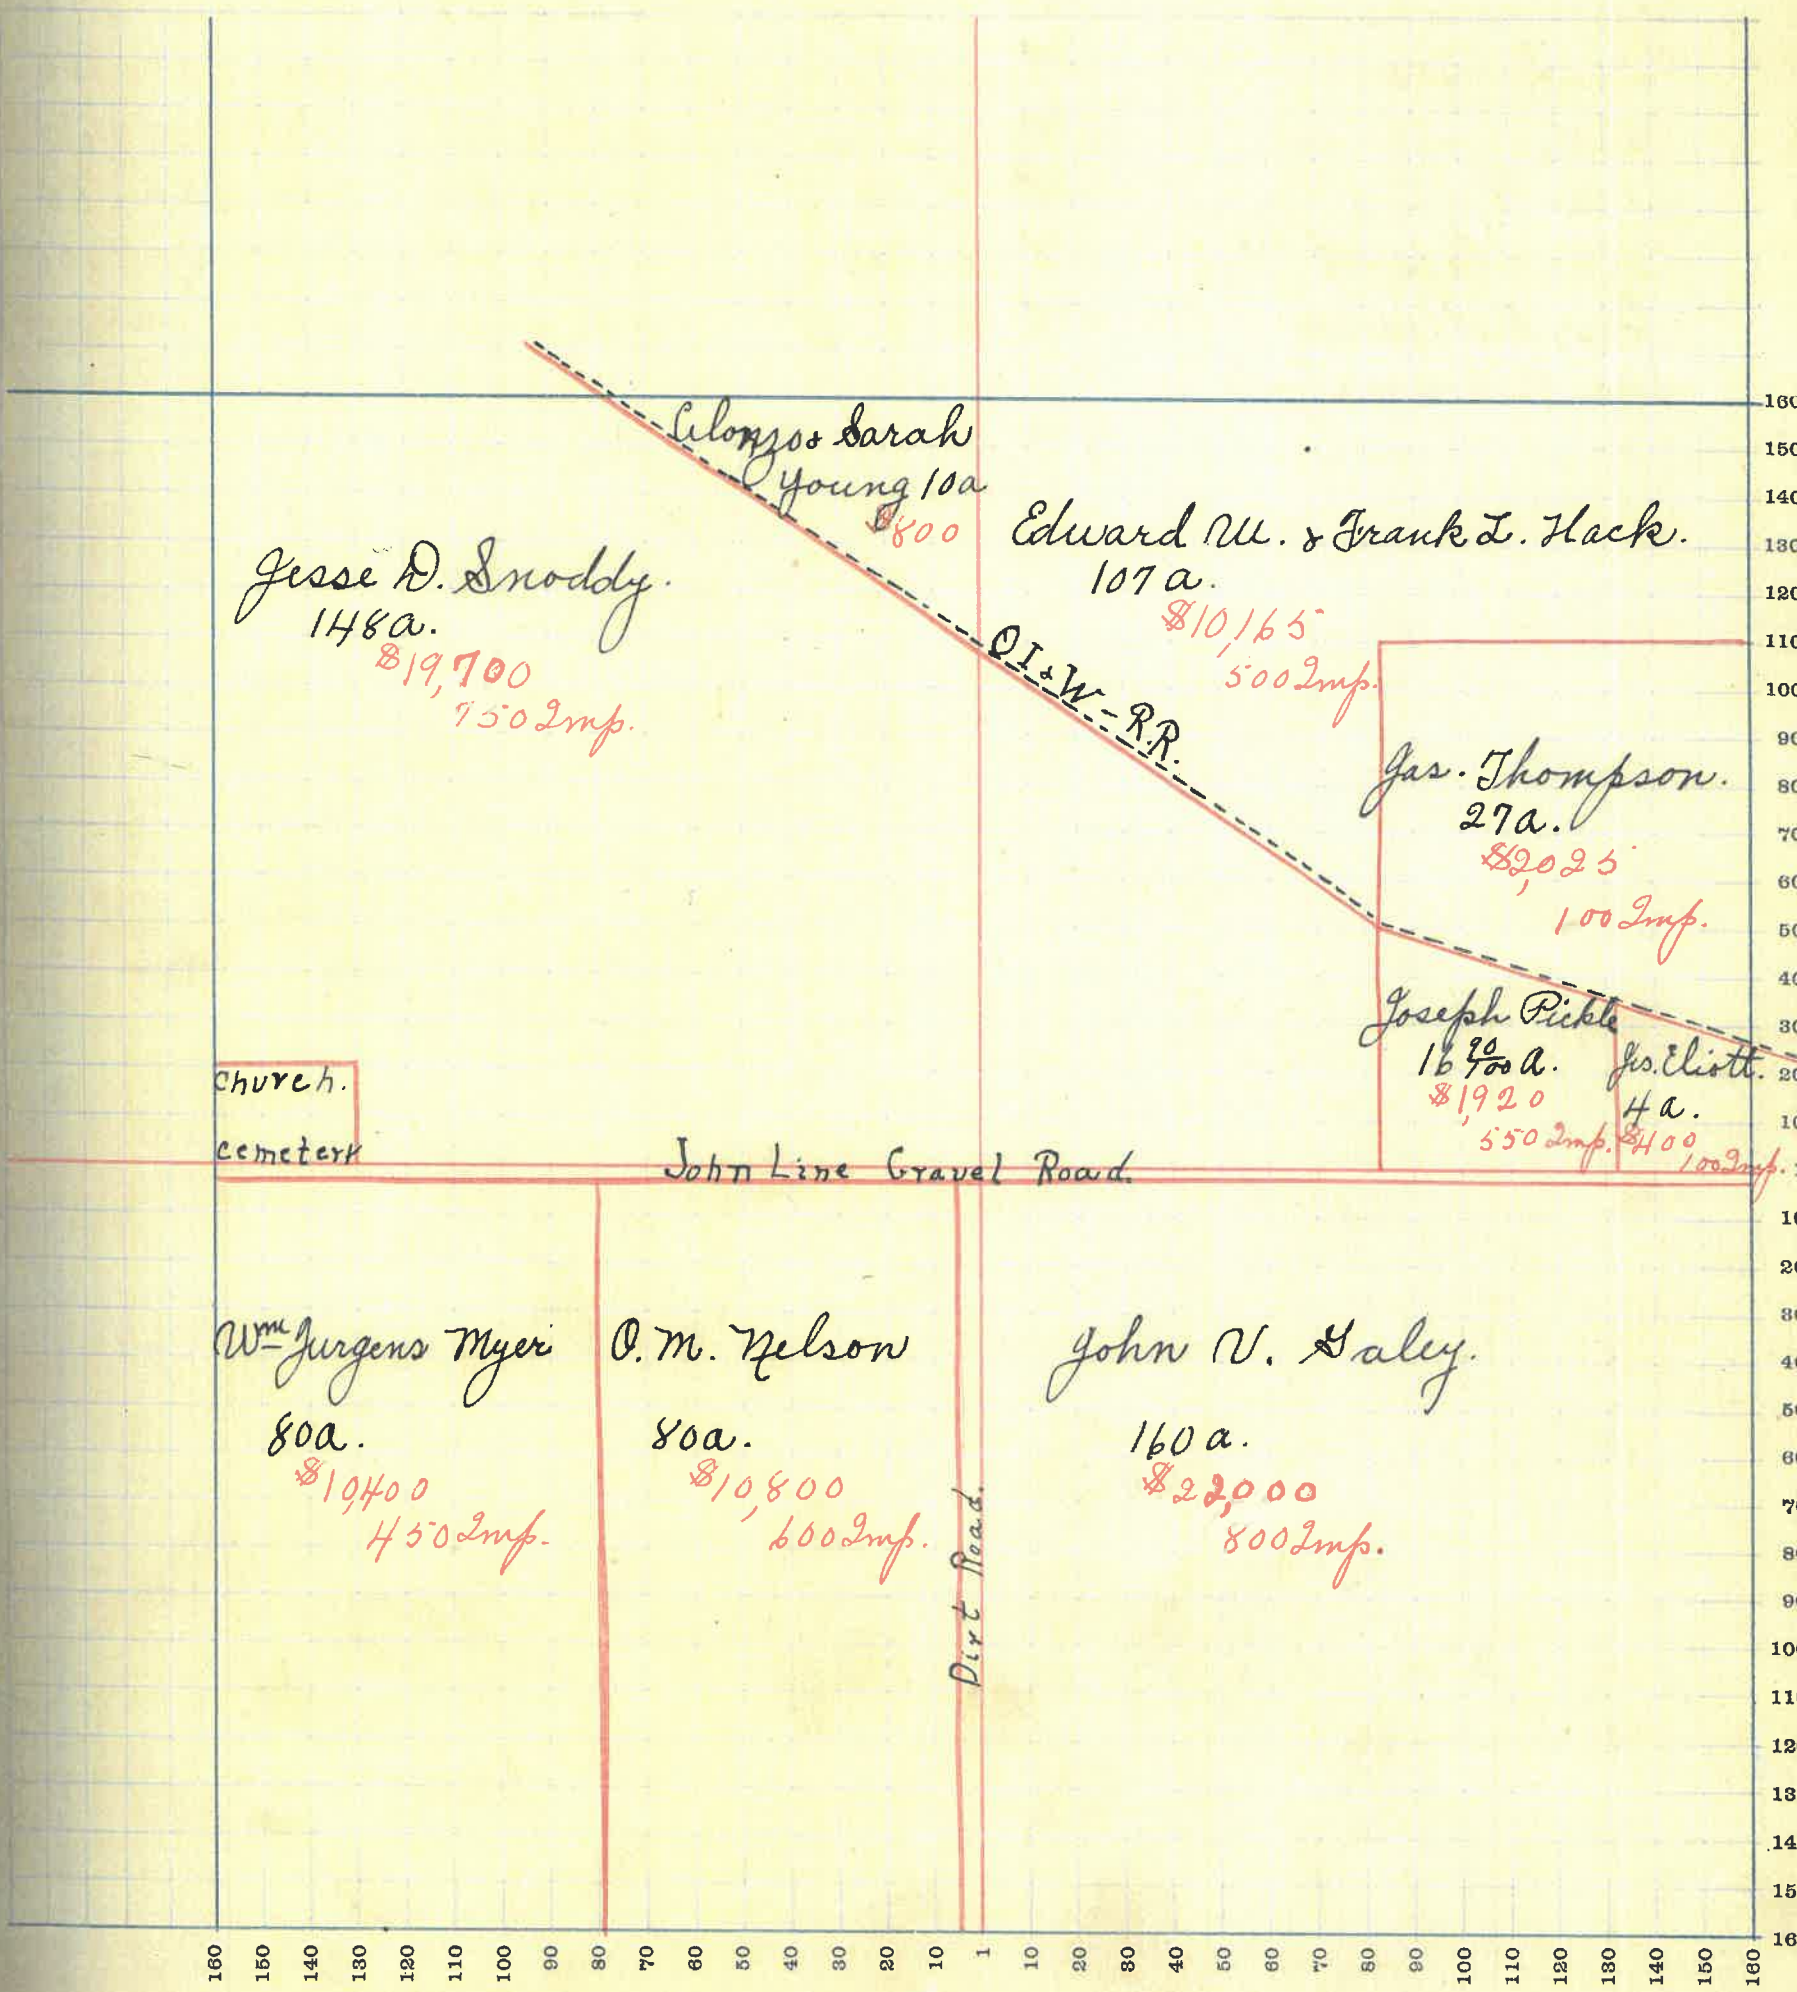 Alonzo & Sarah
Young 10a
$800
Edward W. & Frank L. Hack.
107 a.
$10,165
500 Imp.
Jesse D. Snoddy.
148a.
$19,700
750 Imp.
O I & W - R.R.
Jas. Thompson.
27a.
$2,025
100 Imp.
Joseph Pickle
16 90/100 a.
$1,920
550 Imp.
Jas. Eliott.
4 a.
$400
100 Imp.
church.
cemetery
John Line Gravel Road.
Wm Jurgens Myer
80a.
$10,400
450 Imp.
O. M. Nelson
80a.
$10,800
600 Imp.
Dirt Road.
John V. Galey.
160 a.
$22,000
800 Imp.
160
150
140
130
120
110
100
90
80
70
60
50
40
30
20
10
1
10
20
30
40
50
60
70
80
90
100
110
120
130
140
150
160
160 150 140 130 120 110 100 90 80 70 60 50 40 30 20 10 1 10 20 30 40 50 60 70 80 90 100 110 120 130 140 150 160